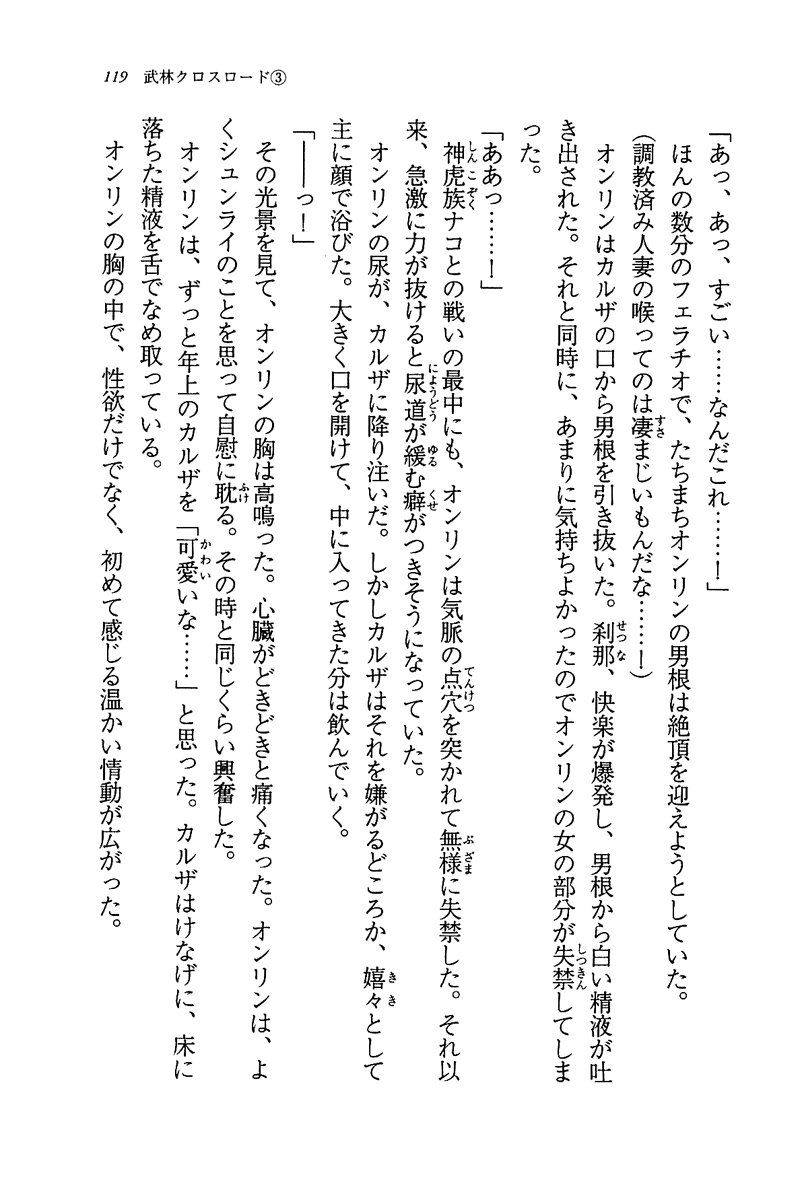 119 武林クロスロード③
「あっ、あっ、すごい……なんだこれ……！」
ほんの数分のフェラチオで、たちまちオンリンの男根は絶頂を迎えようとしていた。
（調教済み人妻の喉ってのは凄まじいもんだな……！）
オンリンはカルザの口から男根を引き抜いた。刹那、快楽が爆発し、男根から白い精液が吐
き出された。それと同時に、あまりに気持ちよかったのでオンリンの女の部分が失禁してしま
った。
「ああっ……！」
神虎族ナコとの戦いの最中にも、オンリンは気脈の点穴を突かれて無様に失禁した。それ以
来、急激に力が抜けると尿道が緩む癖がつきそうになっていた。
オンリンの尿が、カルザに降り注いだ。しかしカルザはそれを嫌がるどころか、嬉々として
主に顔で浴びた。大きく口を開けて、中に入ってきた分は飲んでいく。
「――っ！」
その光景を見て、オンリンの胸は高鳴った。心臓がどきどきと痛くなった。オンリンは、よ
くシュンライのことを思って自慰に耽る。その時と同じくらい興奮した。
オンリンは、ずっと年上のカルザを「可愛いな……」と思った。カルザはけなげに、床に
落ちた精液を舌でなめ取っている。
オンリンの胸の中で、性欲だけでなく、初めて感じる温かい情動が広がった。